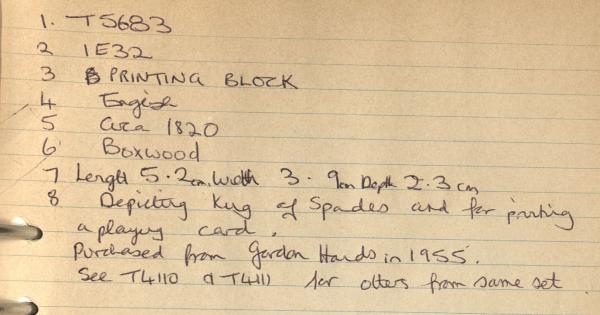 1. T5683
2 1E32
3 PRINTING BLOCK
4 English
5 Circa 1820
6 Boxwood
7 Length 5.2cm. Width 3.9cm Depth 2.3cm
8 Depicting King of Spades and for printing
a playing card.
Purchased from Gordon Hands in 1955.
See T4110 & T4111 for others from same set.